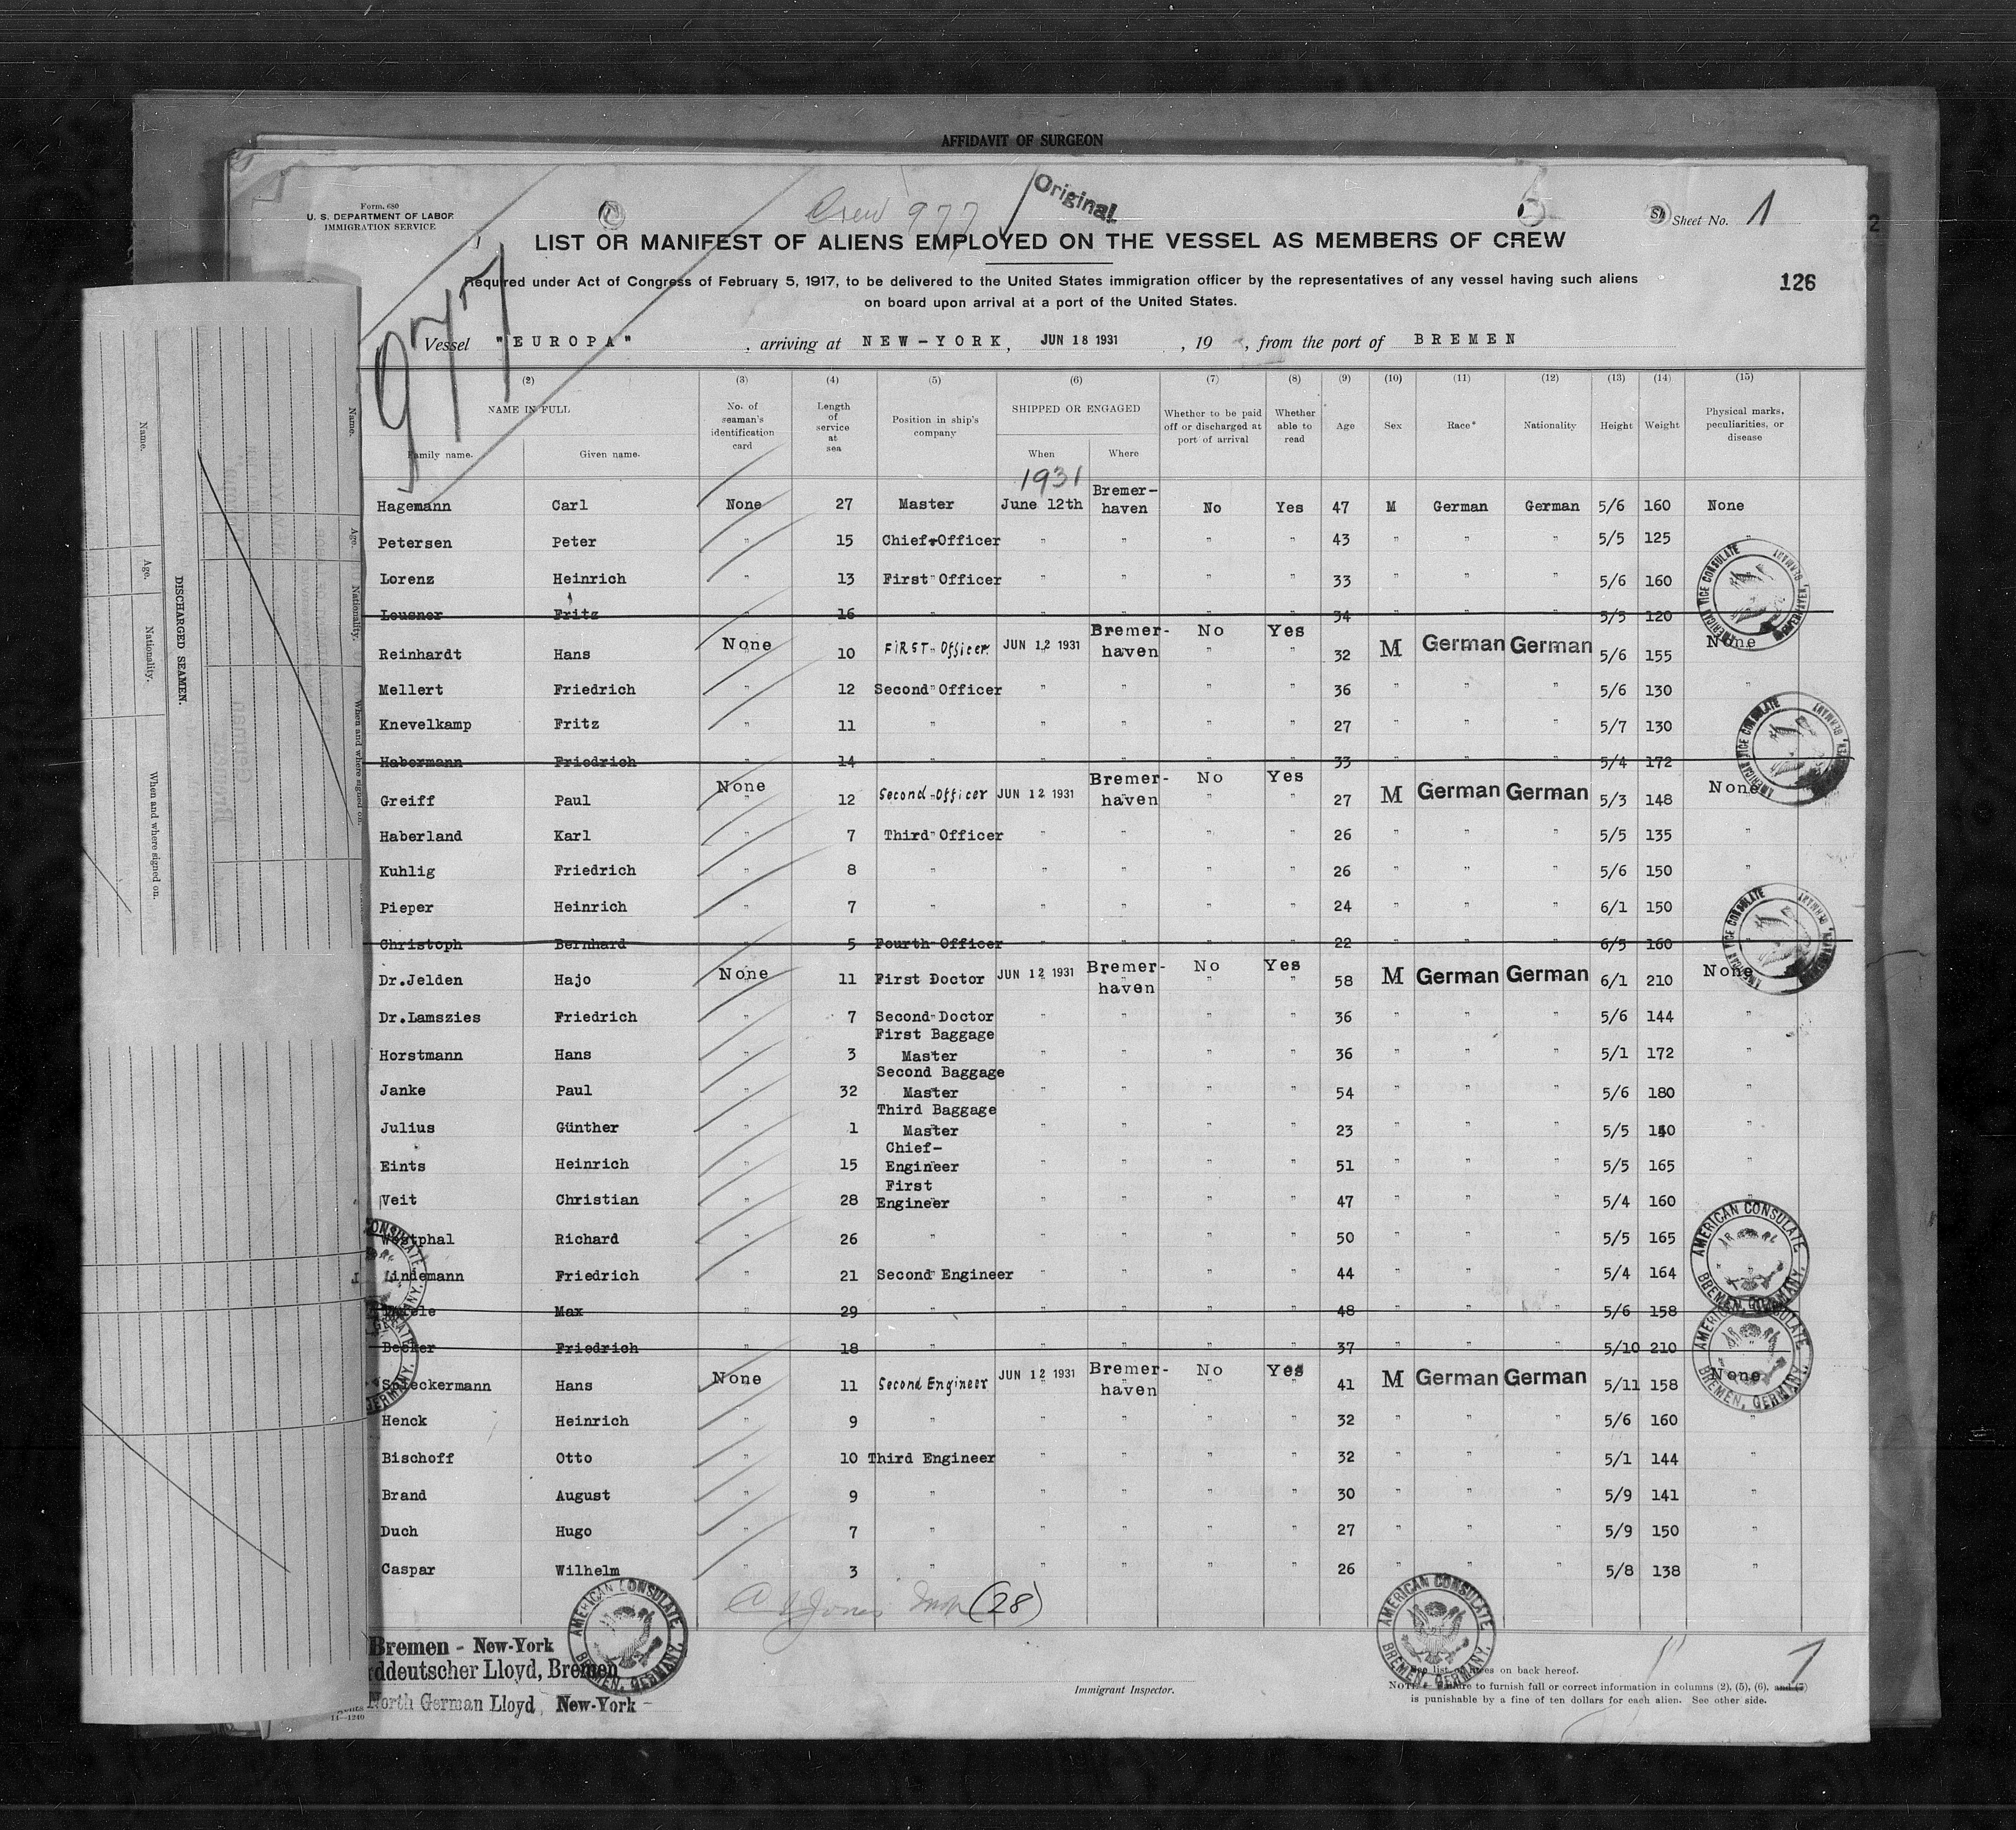 AFFIDAVIT OF SURGEON
Form 680
U. S. DEPARTMENT OF LABOR
IMMIGRATION SERVICE
Crew 977
Original
Sheet No. 1
LIST OR MANIFEST OF ALIENS EMPLOYED ON THE VESSEL AS MEMBERS OF CREW
Required under Act of Congress of February 5, 1917, to be delivered to the United States immigration officer by the representatives of any vessel having such aliens
on board upon arrival at a port of the United States.
126
2
977
Vessel "EUROPA", arriving at NEW-YORK, JUN 18 1931, 19 , from the port of BREMEN
(2) (3) (4) (5) (6) (7) (8) (9) (10) (11) (12) (13) (14) (15)
NAME IN FULL
Family name. Given name.
No. of seaman's identification card
Length of service at sea
Position in ship's company
SHIPPED OR ENGAGED
When Where
Whether to be paid off or discharged at port of arrival
Whether able to read
Age
Sex
Race*
Nationality
Height
Weight
Physical marks, peculiarities, or disease
1931
Hagemann Carl None 27 Master June 12th Bremer-haven No Yes 47 M German German 5/6 160 None
Petersen Peter " 15 Chief Officer " " " " 43 " " " 5/5 125 "
Lorenz Heinrich " 13 First Officer " " " " 33 " " " 5/6 160
Leusner Fritz 16 " " " " " 34 " " " 5/5 120
Reinhardt Hans None 10 FIRST Officer JUN 12 1931 Bremer-haven No Yes 32 M German German 5/6 155 None
Mellert Friedrich " 12 Second Officer " " " " 36 " " " 5/6 130 "
Knevelkamp Fritz " 11 " " " " " 27 " " " 5/7 130
Habermann Friedrich 14 " " " " " 33 " " " 5/4 172
Greiff Paul None 12 Second Officer JUN 12 1931 Bremer-haven No Yes 27 M German German 5/3 148 None
Haberland Karl " 7 Third Officer " " " " 26 " " " 5/5 135 "
Kuhlig Friedrich " 8 " " " " " 26 " " " 5/6 150 "
Pieper Heinrich " 7 " " " " " 24 " " " 6/1 150
Christoph Bernhard 5 Fourth Officer " " " " 22 " " " 6/5 160 "
Dr.Jelden Hajo None 11 First Doctor JUN 12 1931 Bremer-haven No Yes 58 M German German 6/1 210 None
Dr.Lamszies Friedrich " 7 Second Doctor " " " " 36 " " " 5/6 144 "
Horstmann Hans " 3 First Baggage Master " " " " 36 " " " 5/1 172 "
Janke Paul " 32 Second Baggage Master " " " " 54 " " " 5/6 180 "
Julius Günther " 1 Third Baggage Master " " " " 23 " " " 5/5 140 "
Eints Heinrich " 15 Chief-Engineer " " " " 51 " " " 5/5 165 "
Veit Christian " 28 First Engineer " " " " 47 " " " 5/4 160 "
Westphal Richard " 26 " " " " " 50 " " " 5/5 165
Lindemann Friedrich " 21 Second Engineer " " " " 44 " " " 5/4 164
Max 29 " " " " " 48 " " " 5/6 158
Becker Friedrich 18 " " " " " 37 " " " 5/10 210
Spreckermann Hans None 11 Second Engineer JUN 12 1931 Bremer-haven No Yes 41 M German German 5/11 158 None
Henck Heinrich " 9 " " " " " 32 " " " 5/6 160 "
Bischoff Otto " 10 Third Engineer " " " " 32 " " " 5/1 144 "
Brand August " 9 " " " " " 30 " " " 5/9 141 "
Duch Hugo " 7 " " " " " 27 " " " 5/9 150 "
Caspar Wilhelm " 3 " " " " " 26 " " " 5/8 138 "
(28)
Bremen - New-York
ddeutscher Lloyd, Bremen
North German Lloyd, New-York
11-1240
Immigrant Inspector.
See list of races on back hereof.
NOTE. Failure to furnish full or correct information in columns (2), (5), (6), and (7)
is punishable by a fine of ten dollars for each alien. See other side.
1
AMERICAN VICE CONSULATE
AMERICAN VICE CONSULATE
AMERICAN VICE CONSULATE
AMERICAN CONSULATE BREMEN, GERMANY.
AMERICAN CONSULATE BREMEN, GERMANY.
AMERICAN CONSULATE, BREMEN, GERMANY.
AMERICAN CONSULATE, BREMEN, GERMANY.
DISCHARGED SEAMEN.
Name. Age. Nationality. When and where signed on.
Name. Age. Nationality. When and where signed on.